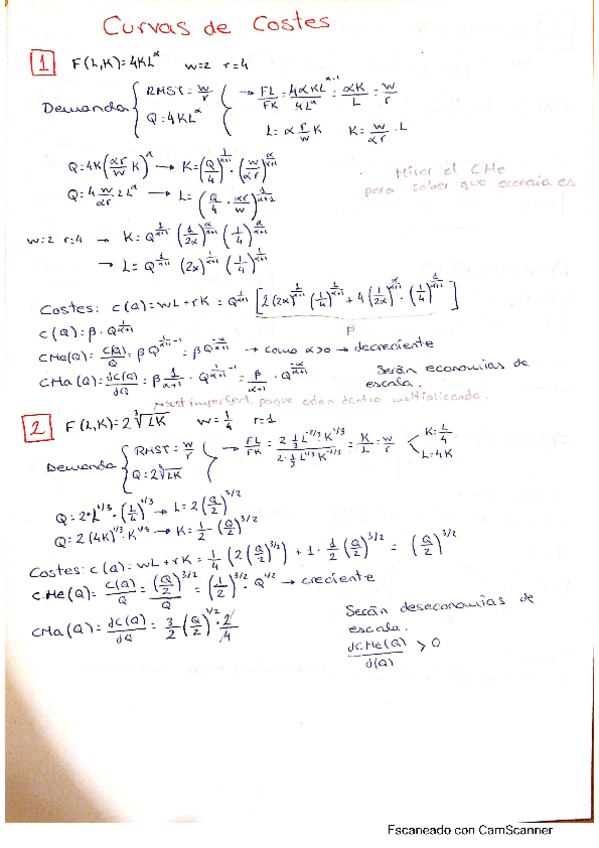 Curvas de Costes
1 F(L,K)=4KL^α w=2 r=4
Demanda { RMST = w/r → FL/FK = 4αKL^(α-1)/4L^α = αK/L = w/r
Q=4KL^α L=α r/w K K= w/αr · L
Q=4K(αr/w K)^α → K=(Q/4)^(1/(α+1)) · (w/αr)^(α/(α+1))
Q=4 w/αr L L^α → L=(Q/4 · αr/w)^(1/(α+1))
Mirar el CMe
para saber que econom
w=2 r=4 → K=Q^(1/(α+1)) (1/2α)^(α/(α+1)) (1/4)^(1/(α+1))
→ L=Q^(1/(α+1)) (2α)^(1/(α+1)) (1/4)^(1/(α+1))
Costes: C(Q)=wL+rK=Q^(1/(α+1)) [2(2α)^(1/(α+1)) (1/4)^(1/(α+1)) + 4(1/2α)^(α/(α+1)) · (1/4)^(1/(α+1))]
β
C(Q)=β·Q^(1/(α+1))
CMe(Q)= C(Q)/Q = βQ^(1/(α+1) -1) = βQ^(-α/(α+1)) → como α>0 → decreciente
CMa(Q)= dC(Q)/dQ = β 1/(α+1) · Q^(1/(α+1) -1) = β/(α+1) · Q^(-α/(α+1))
Serán economías de
escala.
están dentro multiplicando.
2 F(L,K)=2∛LK w=1/4 r=1
Demanda { RMST = w/r → FL/FK = 2 1/3 L^(-2/3) K^(1/3) / 2·1/3 L^(1/3) K^(-2/3) = K/L = w/r < K=L/4
Q=2∛LK L=4K
Q=2·L^(1/3)·(L/4)^(1/3) → L=2(Q/2)^(3/2)
Q=2(4K)^(1/3)·K^(1/3) → K=1/2·(Q/2)^(3/2)
Costes: C(Q)=wL+rK= 1/4 (2(Q/2)^(3/2)) + 1· 1/2 (Q/2)^(3/2) = (Q/2)^(3/2)
CMe(Q)= C(Q)/Q = (Q/2)^(3/2)/Q = (1/2)^(3/2) · Q^(1/2) → creciente
CMa(Q)= dC(Q)/dQ = 3/2 (Q/2)^(1/2) · 2/4
Serán deseconomías de
escala.
dCMe(Q)/d(Q) > 0
Escaneado con CamScanner